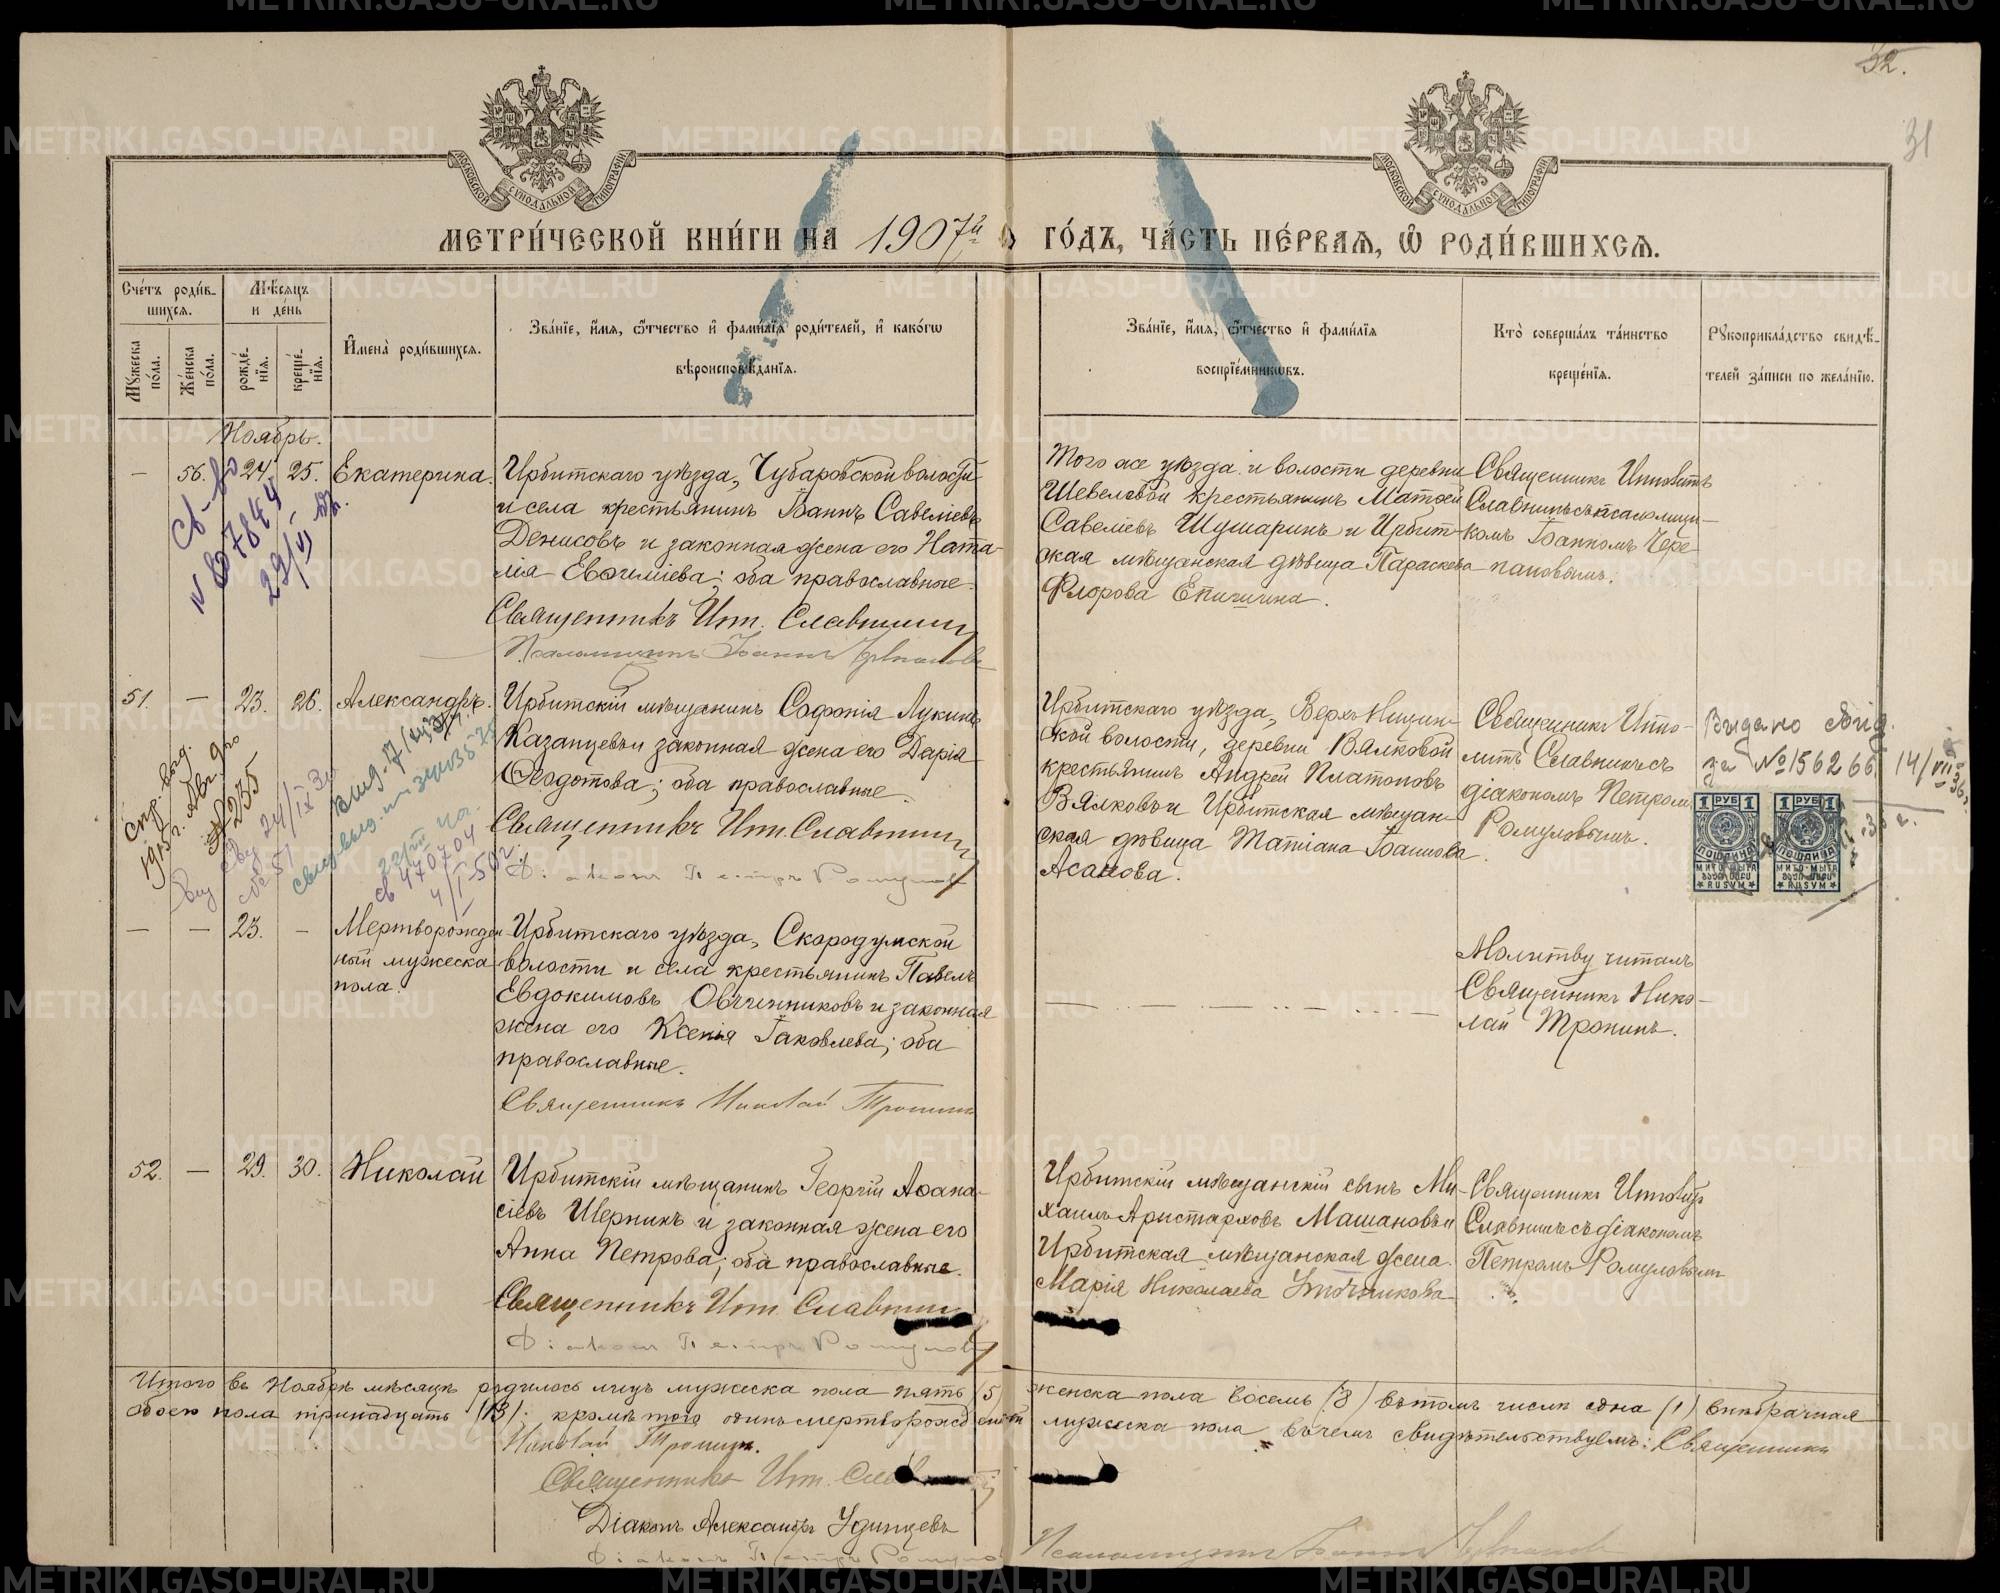 32.
31
МОСКОВСКОЙ СѴНОДАЛЬНОЙ ТИПОГРАФІИ
МОСКОВСКОЙ СѴНОДАЛЬНОЙ ТИПОГРАФІИ
МЕТРИ́ЧЕСКОЙ КНИ́ГИ НА 1907й ГО́ДЪ, ЧА́СТЬ ПЕ́РВАѦ, Ѽ РОДИ́ВШИХСѦ.
Сче́тъ роди́в-
шихсѧ.
Мѣ́сѧцъ
и де́нь
Мꙋ́жеска по́ла.
Же́нска по́ла.
рожде́-нїѧ.
креще́-нїѧ.
И҆мена̀ роди́вшихсѧ.
Зва́нїе, и҆́мѧ, ѻ҆́тчество и҆ фами́лїѧ роди́телей, и҆ како́гѡ
вѣроисповѣ́данїѧ.
Зва́нїе, и҆́мѧ, ѻ҆́тчество и҆ фами́лїѧ
воспрїе́мникѡвъ.
Кто̀ соверша́лъ та́инство
креще́нїѧ.
Рꙋкоприкла́дство свидѣ́-
телей за́писи по жела́нїю.
Ноябрь.
— 56. 24. 25. Екатерина.
Ирбитскаго уѣзда, Чубаровской волости
и села крестьянинъ Іоаннъ Савеліевъ
Денисовъ и законная жена его Ната-
лія Евѳиміева; оба православные.
Священникъ Ип. Славнинъ
Псаломщикъ Іоаннъ Черепановъ
Того же уѣзда и волости деревни
Шевелевой крестьянинъ Матѳей
Савеліевъ Шушаринъ и Ирбит-
ская мѣщанская дѣвица Параскева
Флорова Епишина.
Священникъ Ипполитъ
Славнинъ съ псаломщи-
комъ Іоанномъ Чере-
пановымъ.
Св-во
51. — 23. 26. Александръ.
Ирбитскій мѣщанинъ Софонія Лукинъ
Казанцевъ и законная жена его Дарія
Ѳеодотова; оба православные.
Священникъ Ип. Славнинъ
Діаконъ Петръ Ромуловъ
Ирбитскаго уѣзда, Верхъ-Ницин-
ской волости, деревни Вялковой
крестьянинъ Андрей Платоновъ
Вялковъ и Ирбитская мѣщан-
ская дѣвица Татіана Іоаннова
Асанова.
Священникъ Иппо-
литъ Славнинъ съ
діакономъ Петромъ
Ромуловымъ.
Выдано свид.
за № 156266 14/VII 36 г.
1 РУБ 1
ПОШЛИНА
RUSVM
1 РУБ 1
ПОШЛИНА
RUSVM
1915 г.
св 470704
— — 23. — Мертворожден-
ный мужеска
пола.
Ирбитскаго уѣзда, Скородумской
волости и села крестьянинъ Павелъ
Евдокимовъ Овчинниковъ и законная
жена его Ксенія Іаковлева; оба
православные.
Священникъ Николай Тронинъ
Молитву читалъ
Священникъ Нико-
лай Тронинъ.
52. — 29. 30. Николай
Ирбитскій мѣщанинъ Георгій Аѳана-
сіевъ Шернинъ и законная жена его
Анна Петрова; оба православные.
Священникъ Ип. Славнинъ
Діаконъ Петръ Ромуловъ
Ирбитскій мѣщанскій сынъ Ми-
хаилъ Аристарховъ Машановъ и
Ирбитская мѣщанская жена
Марія Николаева
Священникъ Ипполитъ
Славнинъ съ діакономъ
Петромъ Ромуловымъ
Итого въ Ноябрѣ мѣсяцѣ родилось лицъ мужеска пола пять (5) женска пола восемь (8) въ томъ числѣ одна (1) внѣбрачная
обоего пола тринадцать (13); кромѣ того одинъ мертворожденный мужеска пола въ чемъ свидѣтельствуемъ: Священники
Николай Тронинъ.
Священникъ Ип.
Діаконъ Александръ Удинцевъ
Діаконъ Петръ Ромулов
Псаломщикъ Іоаннъ Черепановъ